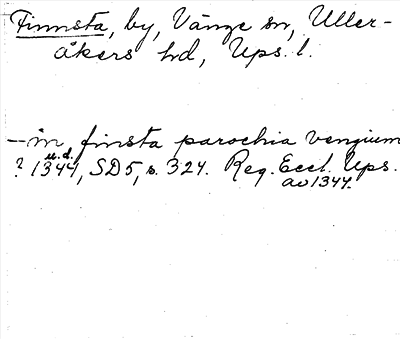 Finnsta, by, Vänge sn, Uller-
åkers hd, Ups. l.
— in finsta parochia vengium
u.d.
? 1344, SD5, s. 324. Reg. Eccl. Ups.
av 1344.